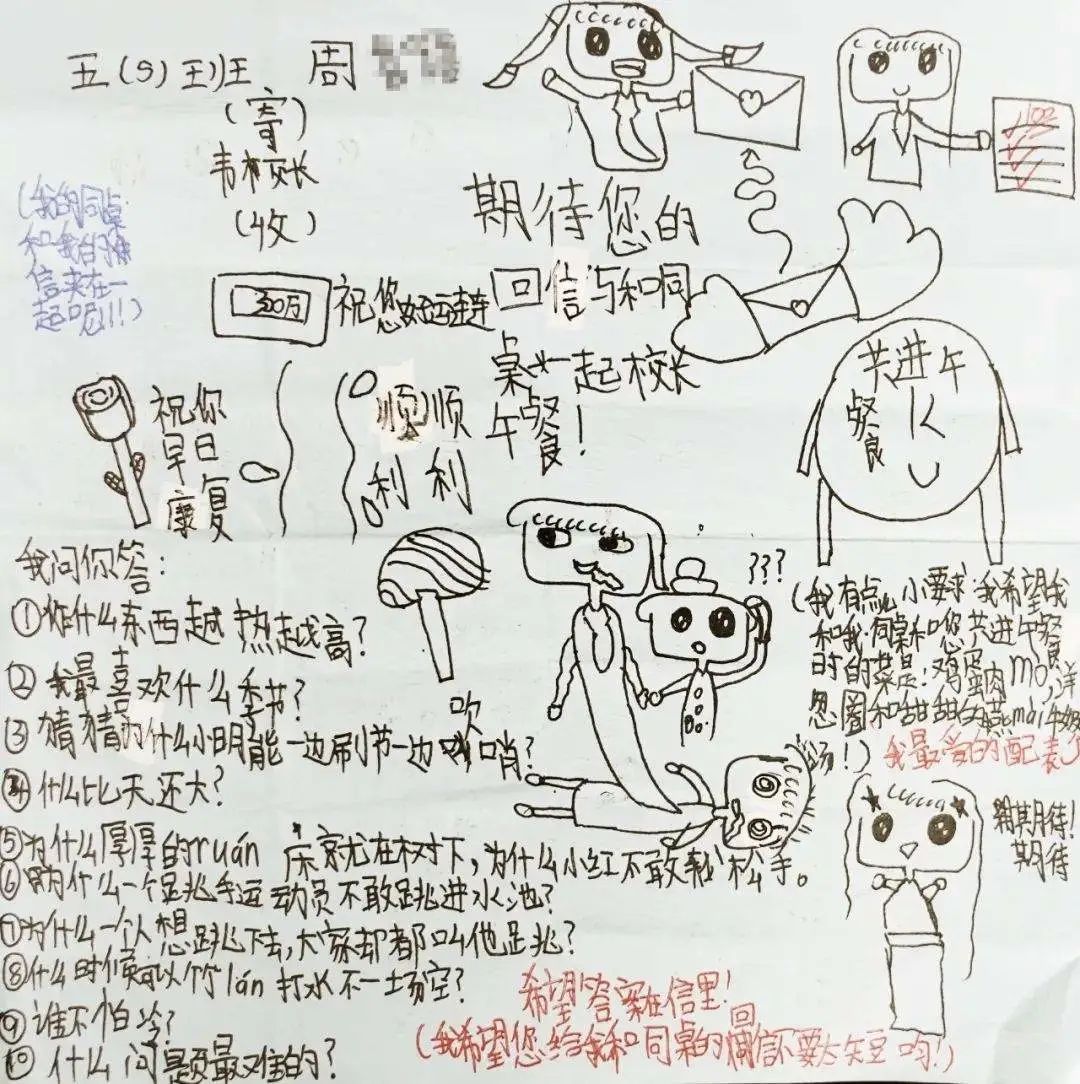 五(9)班 周
(寄)
韦校长
(收)
(我的同桌
和我的
信夹在一
起呢!!!)
期待您的
回信与和同
桌一起校长
午餐!
300万
祝您好运连连
祝你
早日
康复
顺顺
利利
共进午
餐
102
我问你答:
①什么东西越热越高?
②我最喜欢什么季节?
③猜猜为什么小明能一边刷牙一边吹哨?
④什么比天还大?
⑤为什么厚厚的ruán床就在树下,为什么小红不敢松手。
⑥为什么一个跳水运动员不敢跳进水池?
⑦为什么一个人想跳下去,大家却都叫他跳?
⑧什么时候可以竹lán打水不一场空?
⑨谁不怕冷?
⑩什么问题最难的?
???
(我有点儿小要求:我希望我
和我同桌和您共进午餐
时的菜是:鸡蛋肉mó,洋
葱圈和甜甜的燕mài牛奶
汤!)
我最爱的配表
期期待!
期待
希望答案在信里!
(我希望您给我和同桌的回信不要太短哟!)